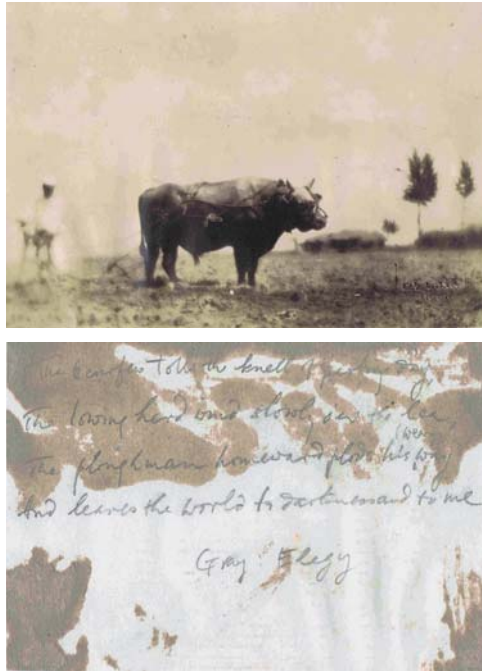 The curfew tolls the knell of parting day,
The lowing herd wind slowly o'er the lea,
(weary)
The ploughman homeward plods his way
And leaves the world to darkness and to me
Gray Elegy